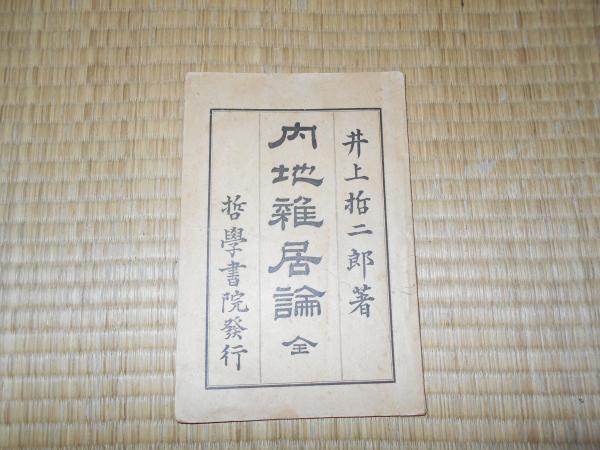 井上哲二郎著
內地雜居論 全
哲學書院發行